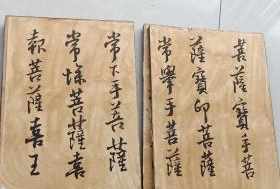 菩薩寶手菩
薩寶印菩薩
常舉手菩薩
常下手菩薩
常慘菩薩喜
根菩薩喜王